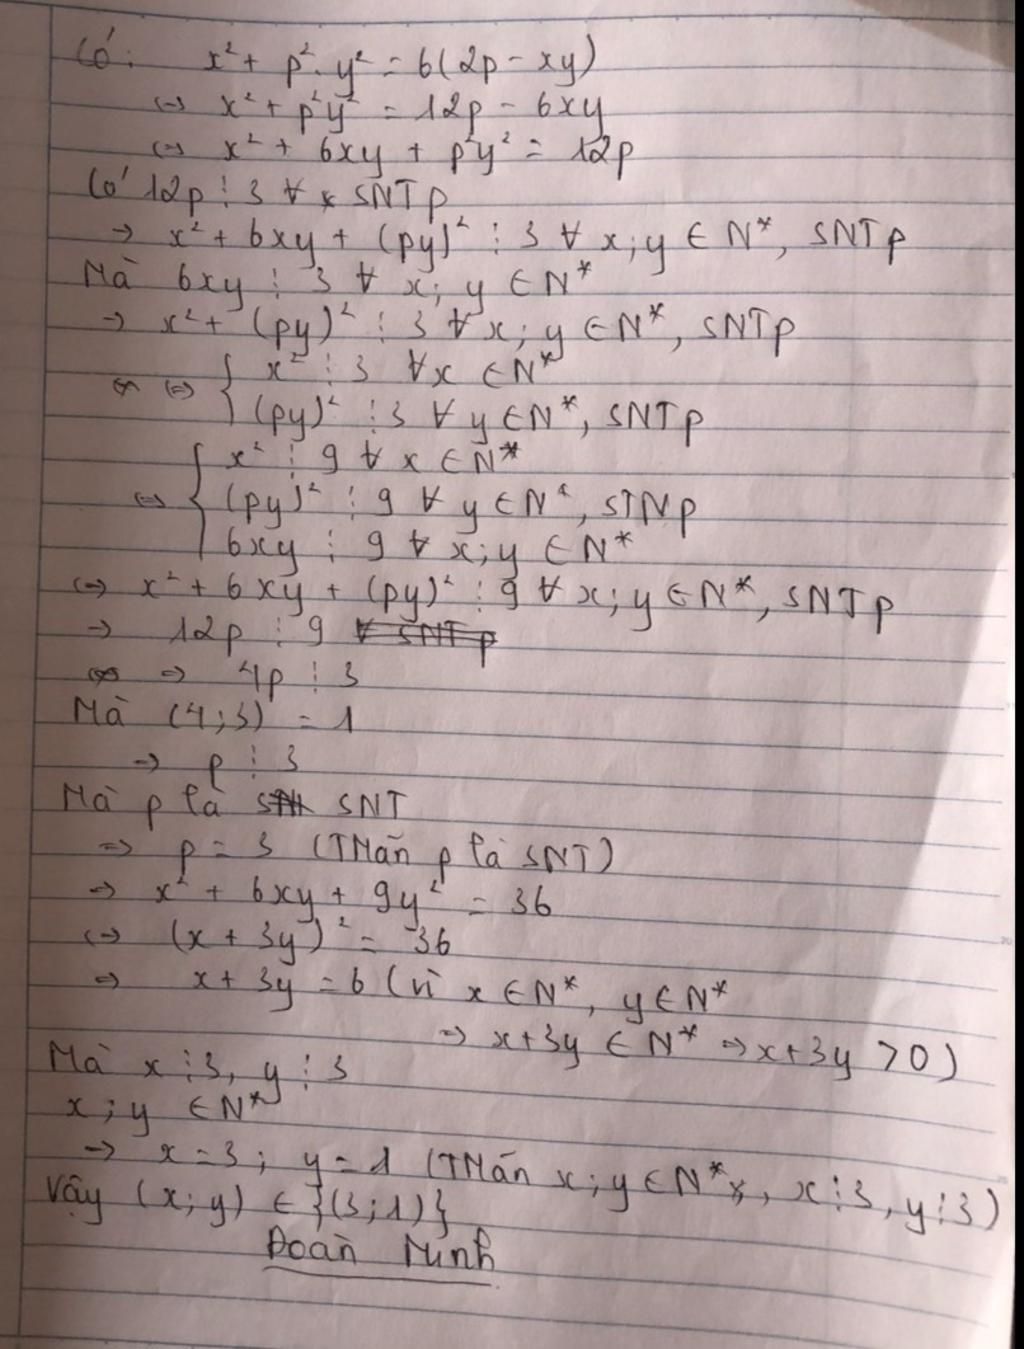 Có: x² + p².y² = 6(2p - xy)
<=> x² + p²y² = 12p - 6xy
<=> x² + 6xy + p²y² = 12p
Có 12p ⋮ 3 ∀ SNT p
=> x² + 6xy + (py)² ⋮ 3 ∀ x; y ∈ N*, SNT p
Mà 6xy ⋮ 3 ∀ x; y ∈ N*
=> x² + (py)² ⋮ 3 ∀ x; y ∈ N*, SNT p
<=> { x² ⋮ 3 ∀x ∈ N*
(py)² ⋮ 3 ∀ y ∈ N*, SNT p
{ x² ⋮ 9 ∀ x ∈ N*
<=> (py)² ⋮ 9 ∀ y ∈ N*, STN p
6xy ⋮ 9 ∀ x; y ∈ N*
<=> x² + 6xy + (py)² ⋮ 9 ∀ x; y ∈ N*, SNT p
=> 12p ⋮ 9
=> 4p ⋮ 3
Mà (4; 3) = 1
=> p ⋮ 3
Mà p là SNT
=> p = 3 (TMãn p là SNT)
=> x² + 6xy + 9y² = 36
<=> (x + 3y)² = 36
=> x + 3y = 6 (vì x ∈ N*, y ∈ N*
=> x + 3y ∈ N* => x + 3y > 0)
Mà x ⋮ 3, y ⋮ 3
x; y ∈ N*
=> x = 3; y = 1 (TMãn x; y ∈ N*, x ⋮ 3, y ⋮ 3)
Vậy (x; y) ∈ {(3; 1)}
Đoàn Minh